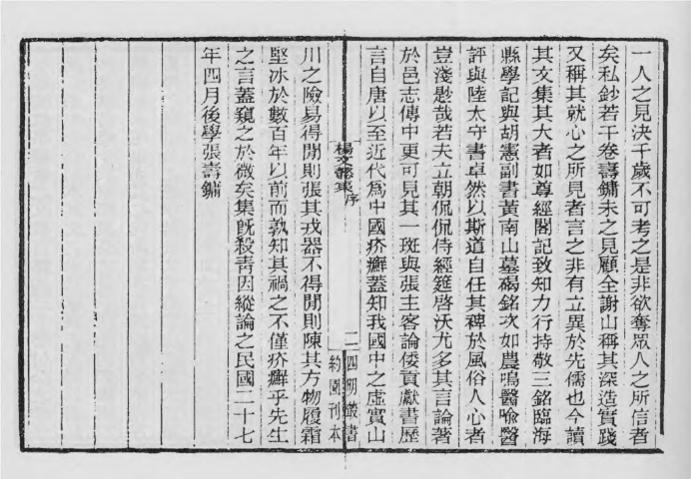 一人之見決千歲不可考之是非欲奪眾人之所信者
矣私鈔若干卷壽鏞未之見顧全謝山稱其深造實踐
又稱其就心之所見者言之非有立異於先儒也今讀
其文集其大者如尊經閣記致知力行持敬三銘臨海
縣學記與胡憲副書黃南山墓碣銘次如農鳴醫喻醫
評與陸太守書卓然以斯道自任其裨於風俗人心者
豈淺尠哉若夫立朝侃侃侍經筵啓沃尤多其言論著
於邑志傳中更可見其一斑與張主客論倭貢獻書歷
言自唐以至近代爲中國疥癬蓋知我國中之虛實山
楊文懿集 序
二
四明叢書
約園刊本
川之險易得閒則張其戎器不得閒則陳其方物履霜
堅冰於數百年以前而孰知其禍之不僅疥癬乎先生
之言蓋窺之於微矣集旣殺青因縱論之民國二十七
年四月後學張壽鏞